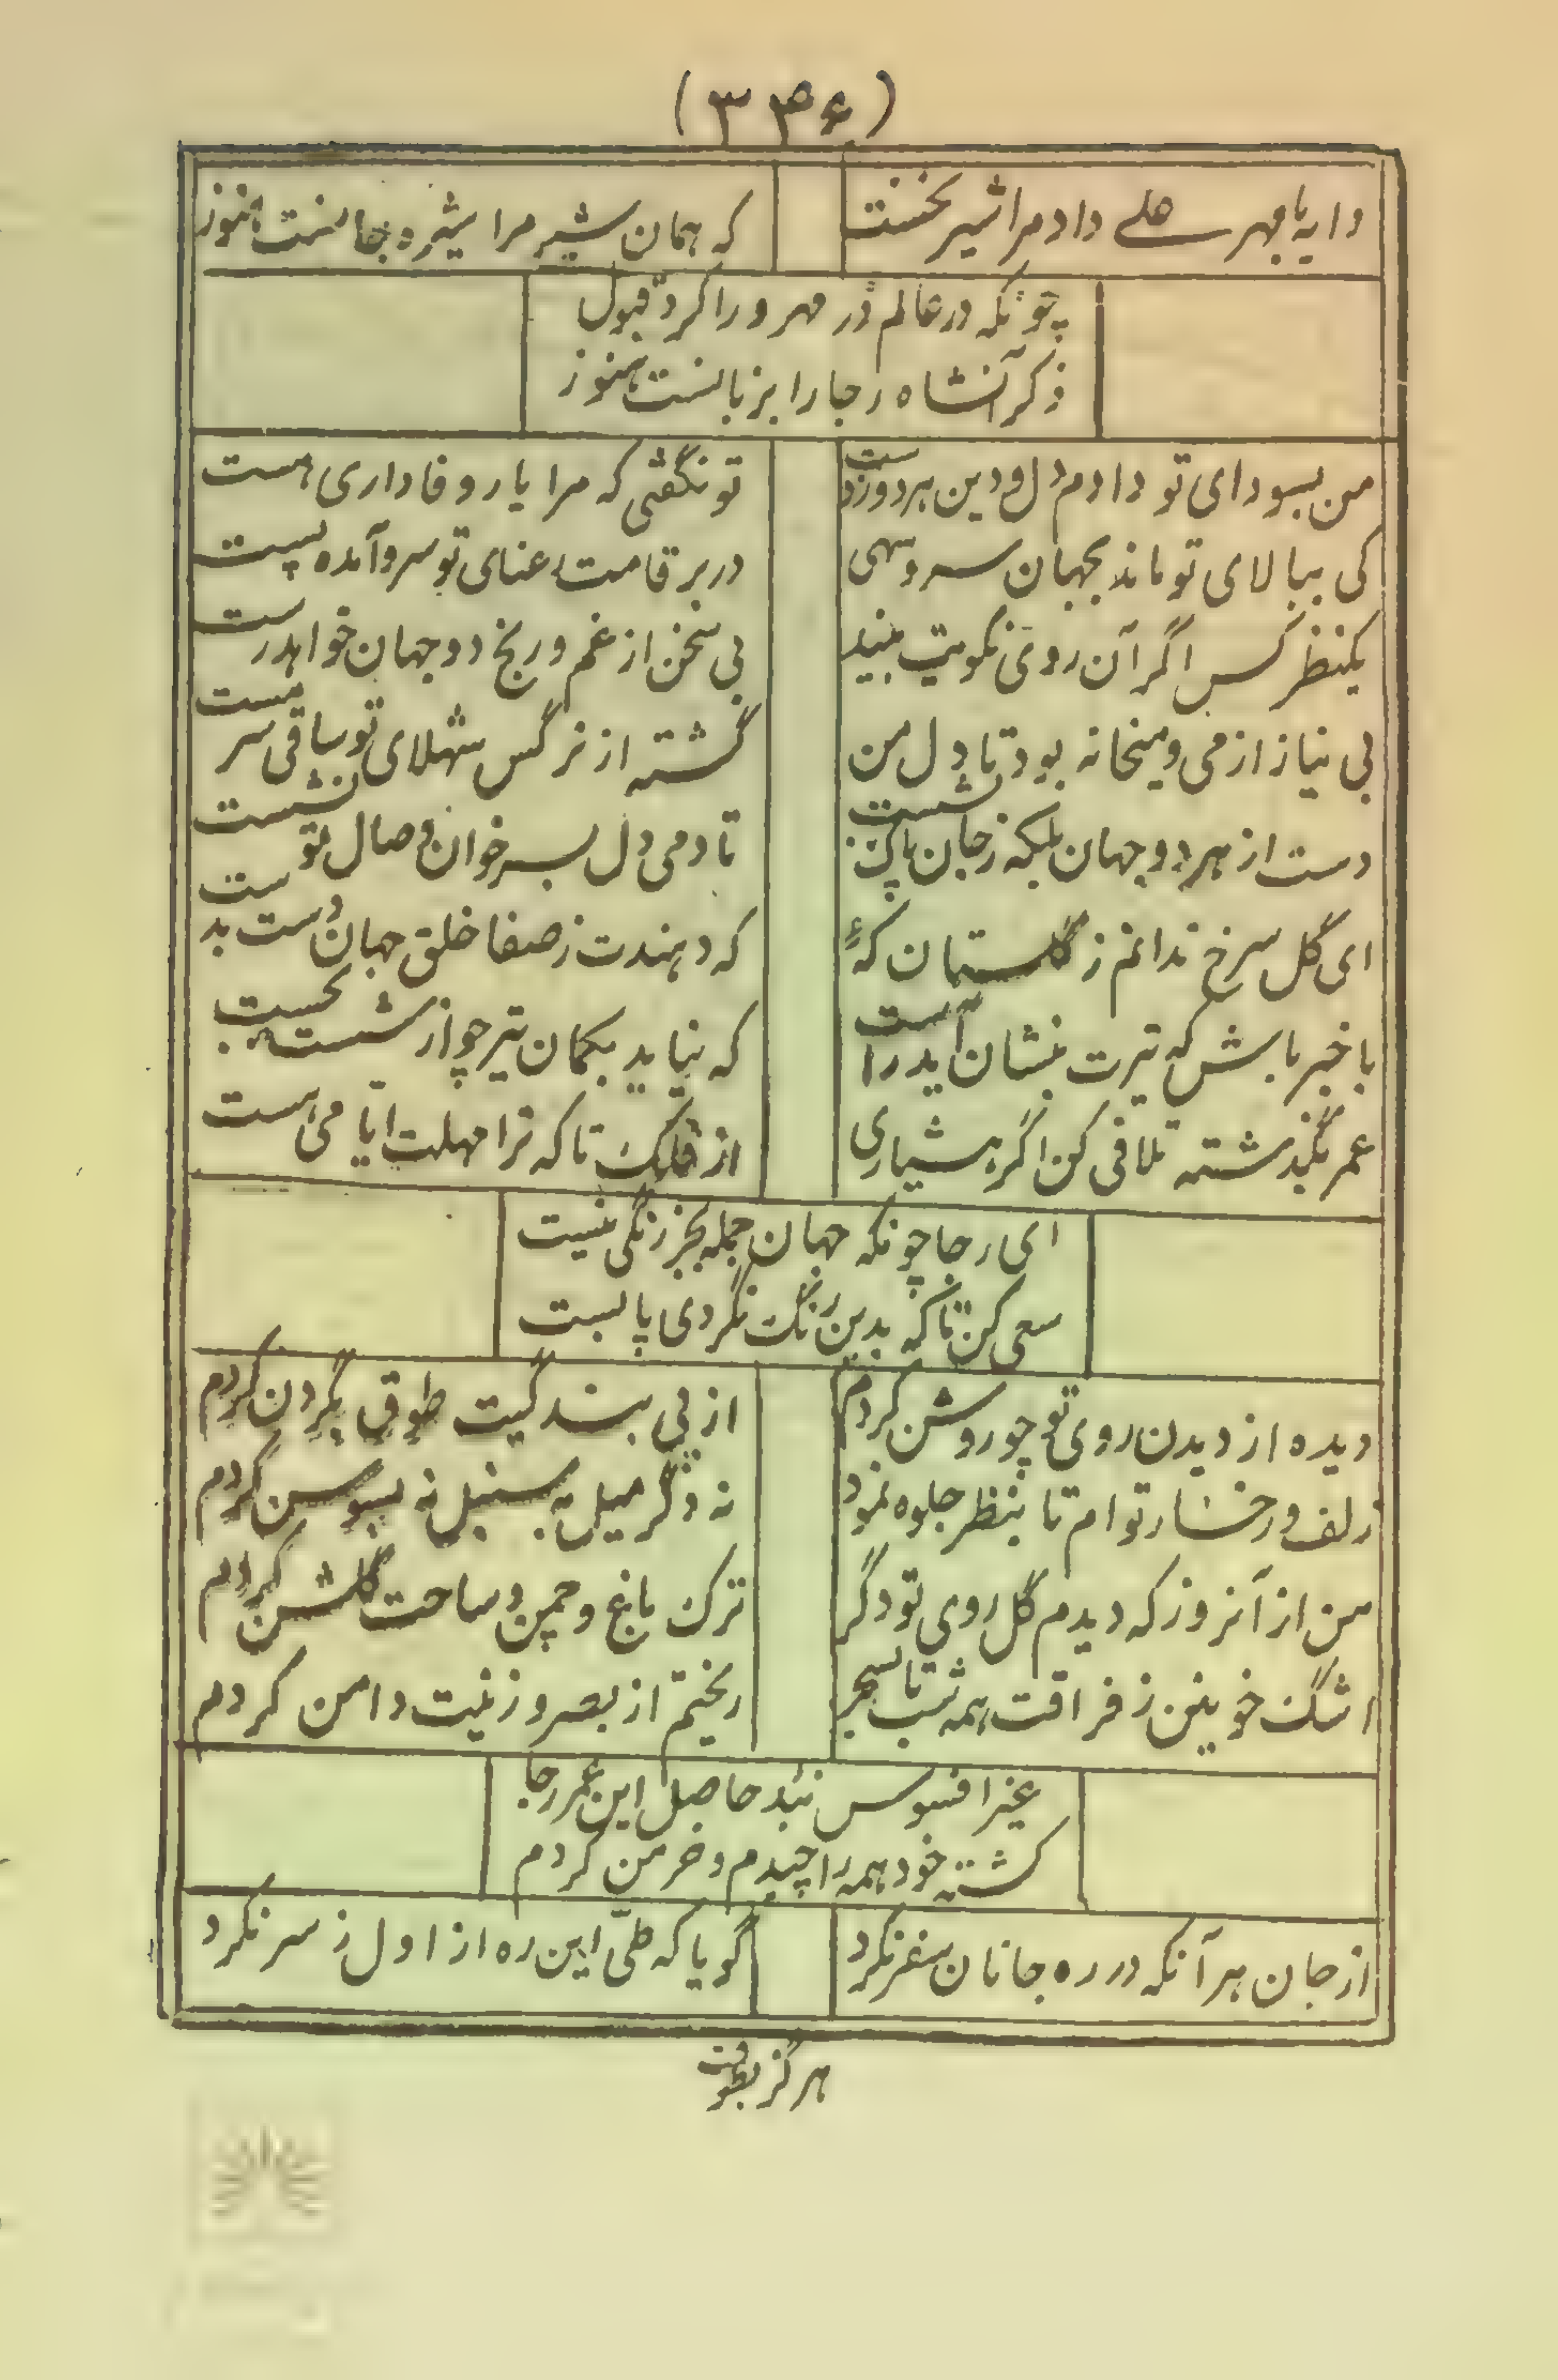 (۳۳۶)
دایه با مهر علی داد مرا شیر نخست
که همان شیر مرا شیره جانست هنوز
چونکه در عالم ذر مهر ورا کرد قبول
ذکر آنشاه رجا را بزبانست هنوز
من بسودای تو دادم دل و دین هردو ز دست
تو نگفتی که مرا یار وفاداری هست
کی ببالای تو ماند بجهان سرو سهی
در بر قامت رعنای تو سرو آمده پست
یکنظر کس اگر آن روی نکویت بیند
بی سخن از غم و رنج دو جهان خواهد رست
بی نیاز از می و میخانه بود تا دل من
گشته از نرگس شهلای تو ساقی سرمست
دست از هر دو جهان بلکه ز جان پاک بشست
تا دمی دل بسر خوان وصال تو نشست
ای گل سرخ ندانم ز گلستان که‌ء
که دهندت ز صفا خلق جهان دست بدست
با خبر باش که تیرت بنشان آید راست
که نیاید بکمان تیر چو از شست بجست
عمر بگذشته تلافی کن اگر هشیاری
از فلک تا که ترا مهلت ایامی هست
ای رجا چونکه جهان جمله بجز رنگی نیست
سعی کن تا که بدین رنگ نگردی پابست
دیده از دیدن روی تو چو روشن کردم
از پی بندگیت طوق بگردن کردم
زلف و رخسار توام تا بنظر جلوه نمود
نه دگر میل به سنبل نه بسوسن کردم
من از آنروز که دیدم گل روی تو دگر
ترک باغ و چمن و ساحت گلشن کردم
اشک خونین ز فراقت همه شب تا بسحر
ریختم از بصر و زینت دامن کردم
غیر افسوس نبد حاصل این عمر رجا
کشته خود همه را چیدم و خرمن کردم
از جان هر آنکه در ره جانان سفر نکرد
گویا که طی این ره از اول ز سر نکرد
هرگز بطوف